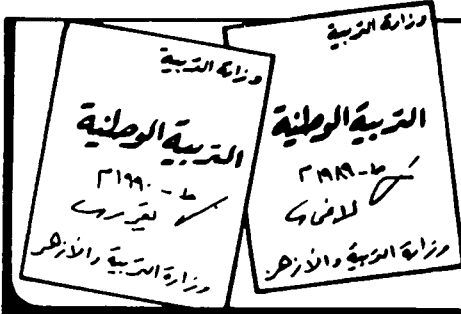 وزارة التربية
التربية الوطنية
ط - ١٩٨٩ م
وزارة التربية والأزهر
وزارة التربية
التربية الوطنية
ط - ١٩٩٠ م
وزارة التربية والأزهر